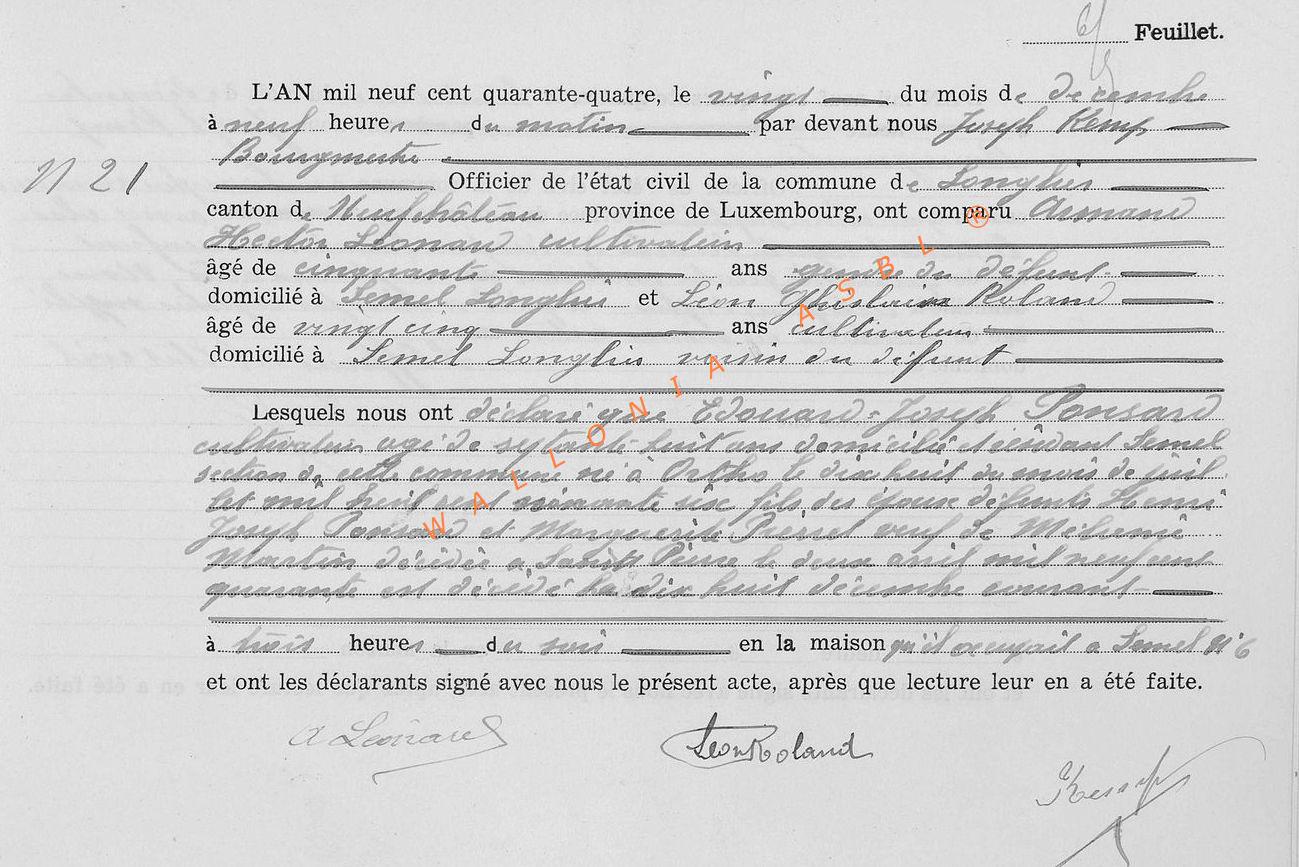 Feuillet.
L'AN mil neuf cent quarante-quatre, le vingt du mois de décembre
à neuf heures du matin par devant nous Joseph Kemp
Bourgmestre
N 21
Officier de l'état civil de la commune de Longlier
canton de Neufchâteau province de Luxembourg, ont comparu Armand
Hector Léonard cultivateur
âgé de cinquante ans gendre du défunt
domicilié à Semel Longlier et Léon Ghislain Roland
âgé de vingt cinq ans cultivateur
domicilié à Semel Longlier voisin du défunt
Lesquels nous ont déclaré que Edouard-Joseph Ponsard
cultivateur agé de septante-huit ans domicilié et résidant Semel
section de cette commune né à Ortho le dix huit du mois de juil
let mil huit cent six fils des époux défunts Henri
Joseph Ponsard et Marguerite Pierret veuf de Mélanie
Martin décédée a Saint Pierre le deux avril mil neuf cent
quarante est décédé le dix huit décembre courant
à trois heures du soir en la maison qu'il occupait a Semel N° 6
et ont les déclarants signé avec nous le présent acte, après que lecture leur en a été faite.
A Léonard
Léon Roland
Kemp
WALLONIA ASBL ®